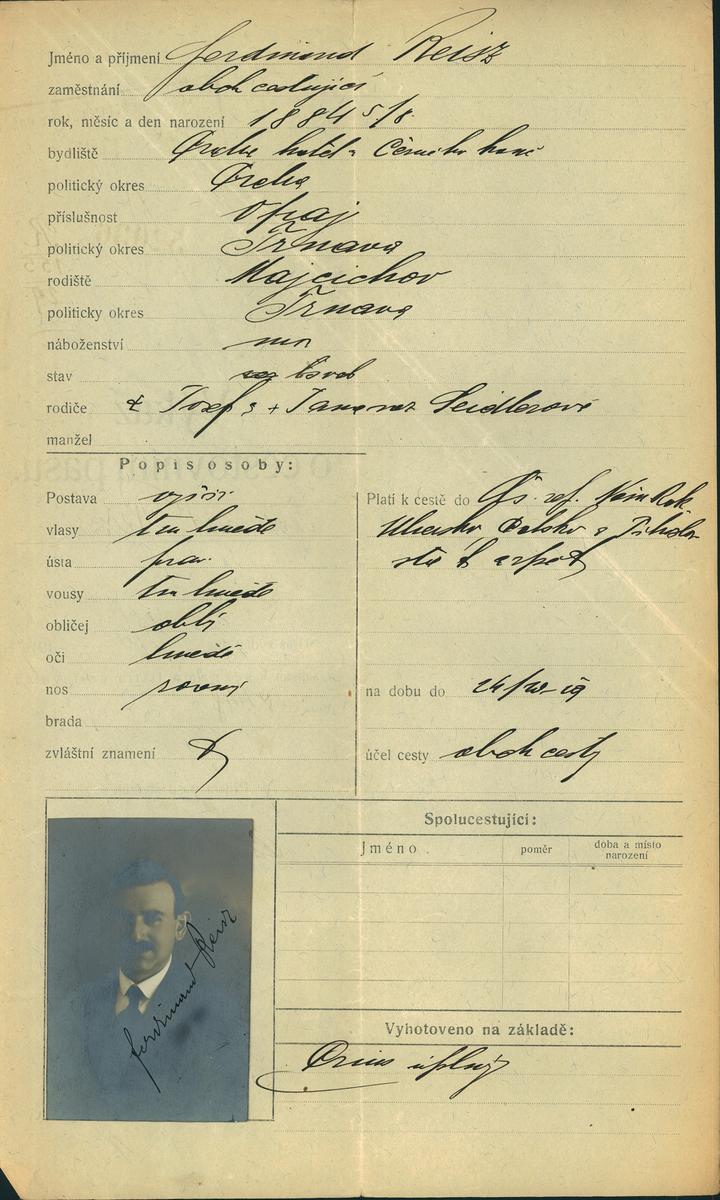 Jméno a příjmení Ferdinand Reisz
zaměstnání obch cestující
rok, měsíc a den narození 1884 5/8.
bydliště Praha hotel u Černého koně
politický okres Praha
příslušnost Opaj
politický okres Trnava
rodiště Majcichov
politicky okres Trnava
náboženství
stav svob
rodiče Josef a + Seidlerové
manžel
Popis osoby:
Postava vyšší
vlasy tm hnědé
ústa prav.
vousy tm hnědé
obličej oblý
oči hnědé
nos rovný
brada
zvláštní znamení
Platí k cestě do Čs. rep. Něm Rak
Uhersko Polsko a
a zpět
na dobu do
účel cesty obch cesty
Ferdinand Reisz
Spolucestující:
Jméno poměr doba a místo narození
Vyhotoveno na základě:
úplný